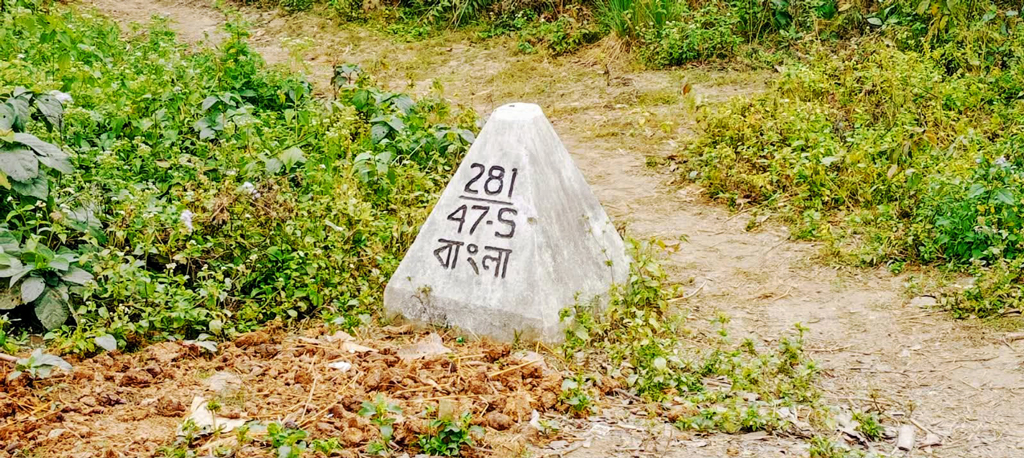 281
47-S
বাংলা